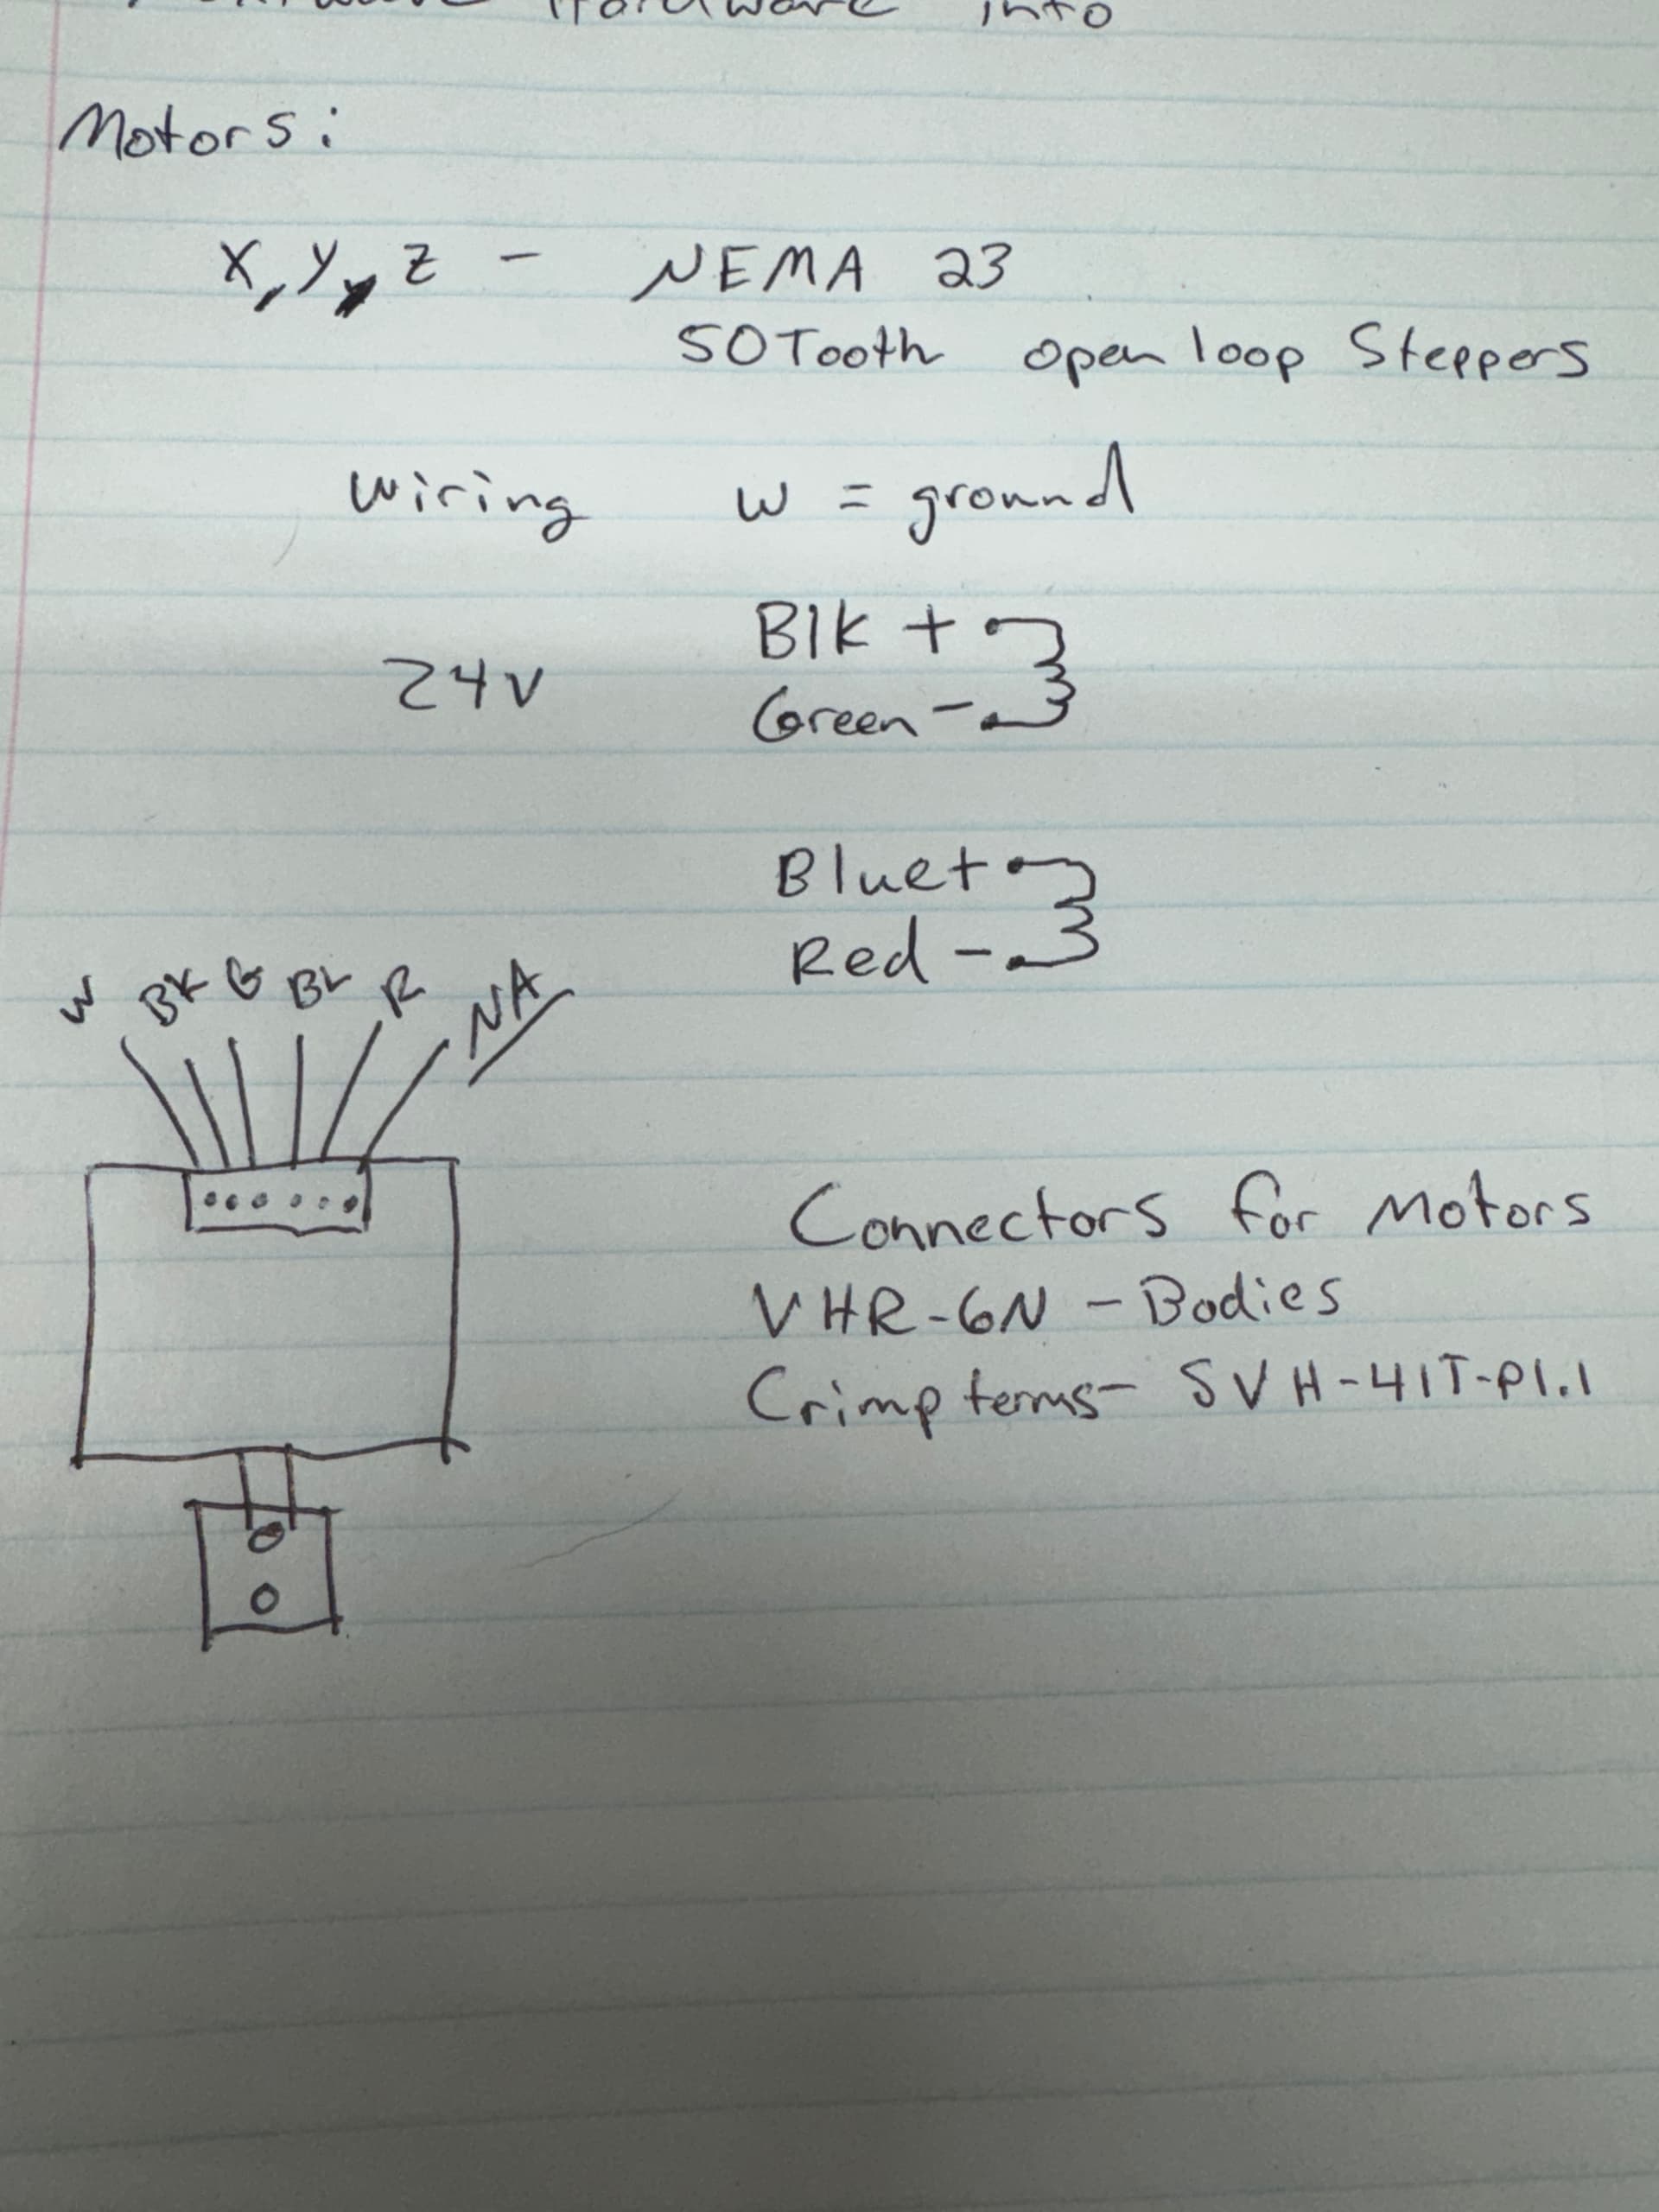 Hardware info
Motors:
X, Y, Z - NEMA 23
50Tooth open loop Steppers
Wiring W = ground
24V
Blk +
Green -
Blue +
Red -
W BK G BL R NA
Connectors for Motors
VHR-6N - Bodies
Crimp terms - SVH-41T-P1.1